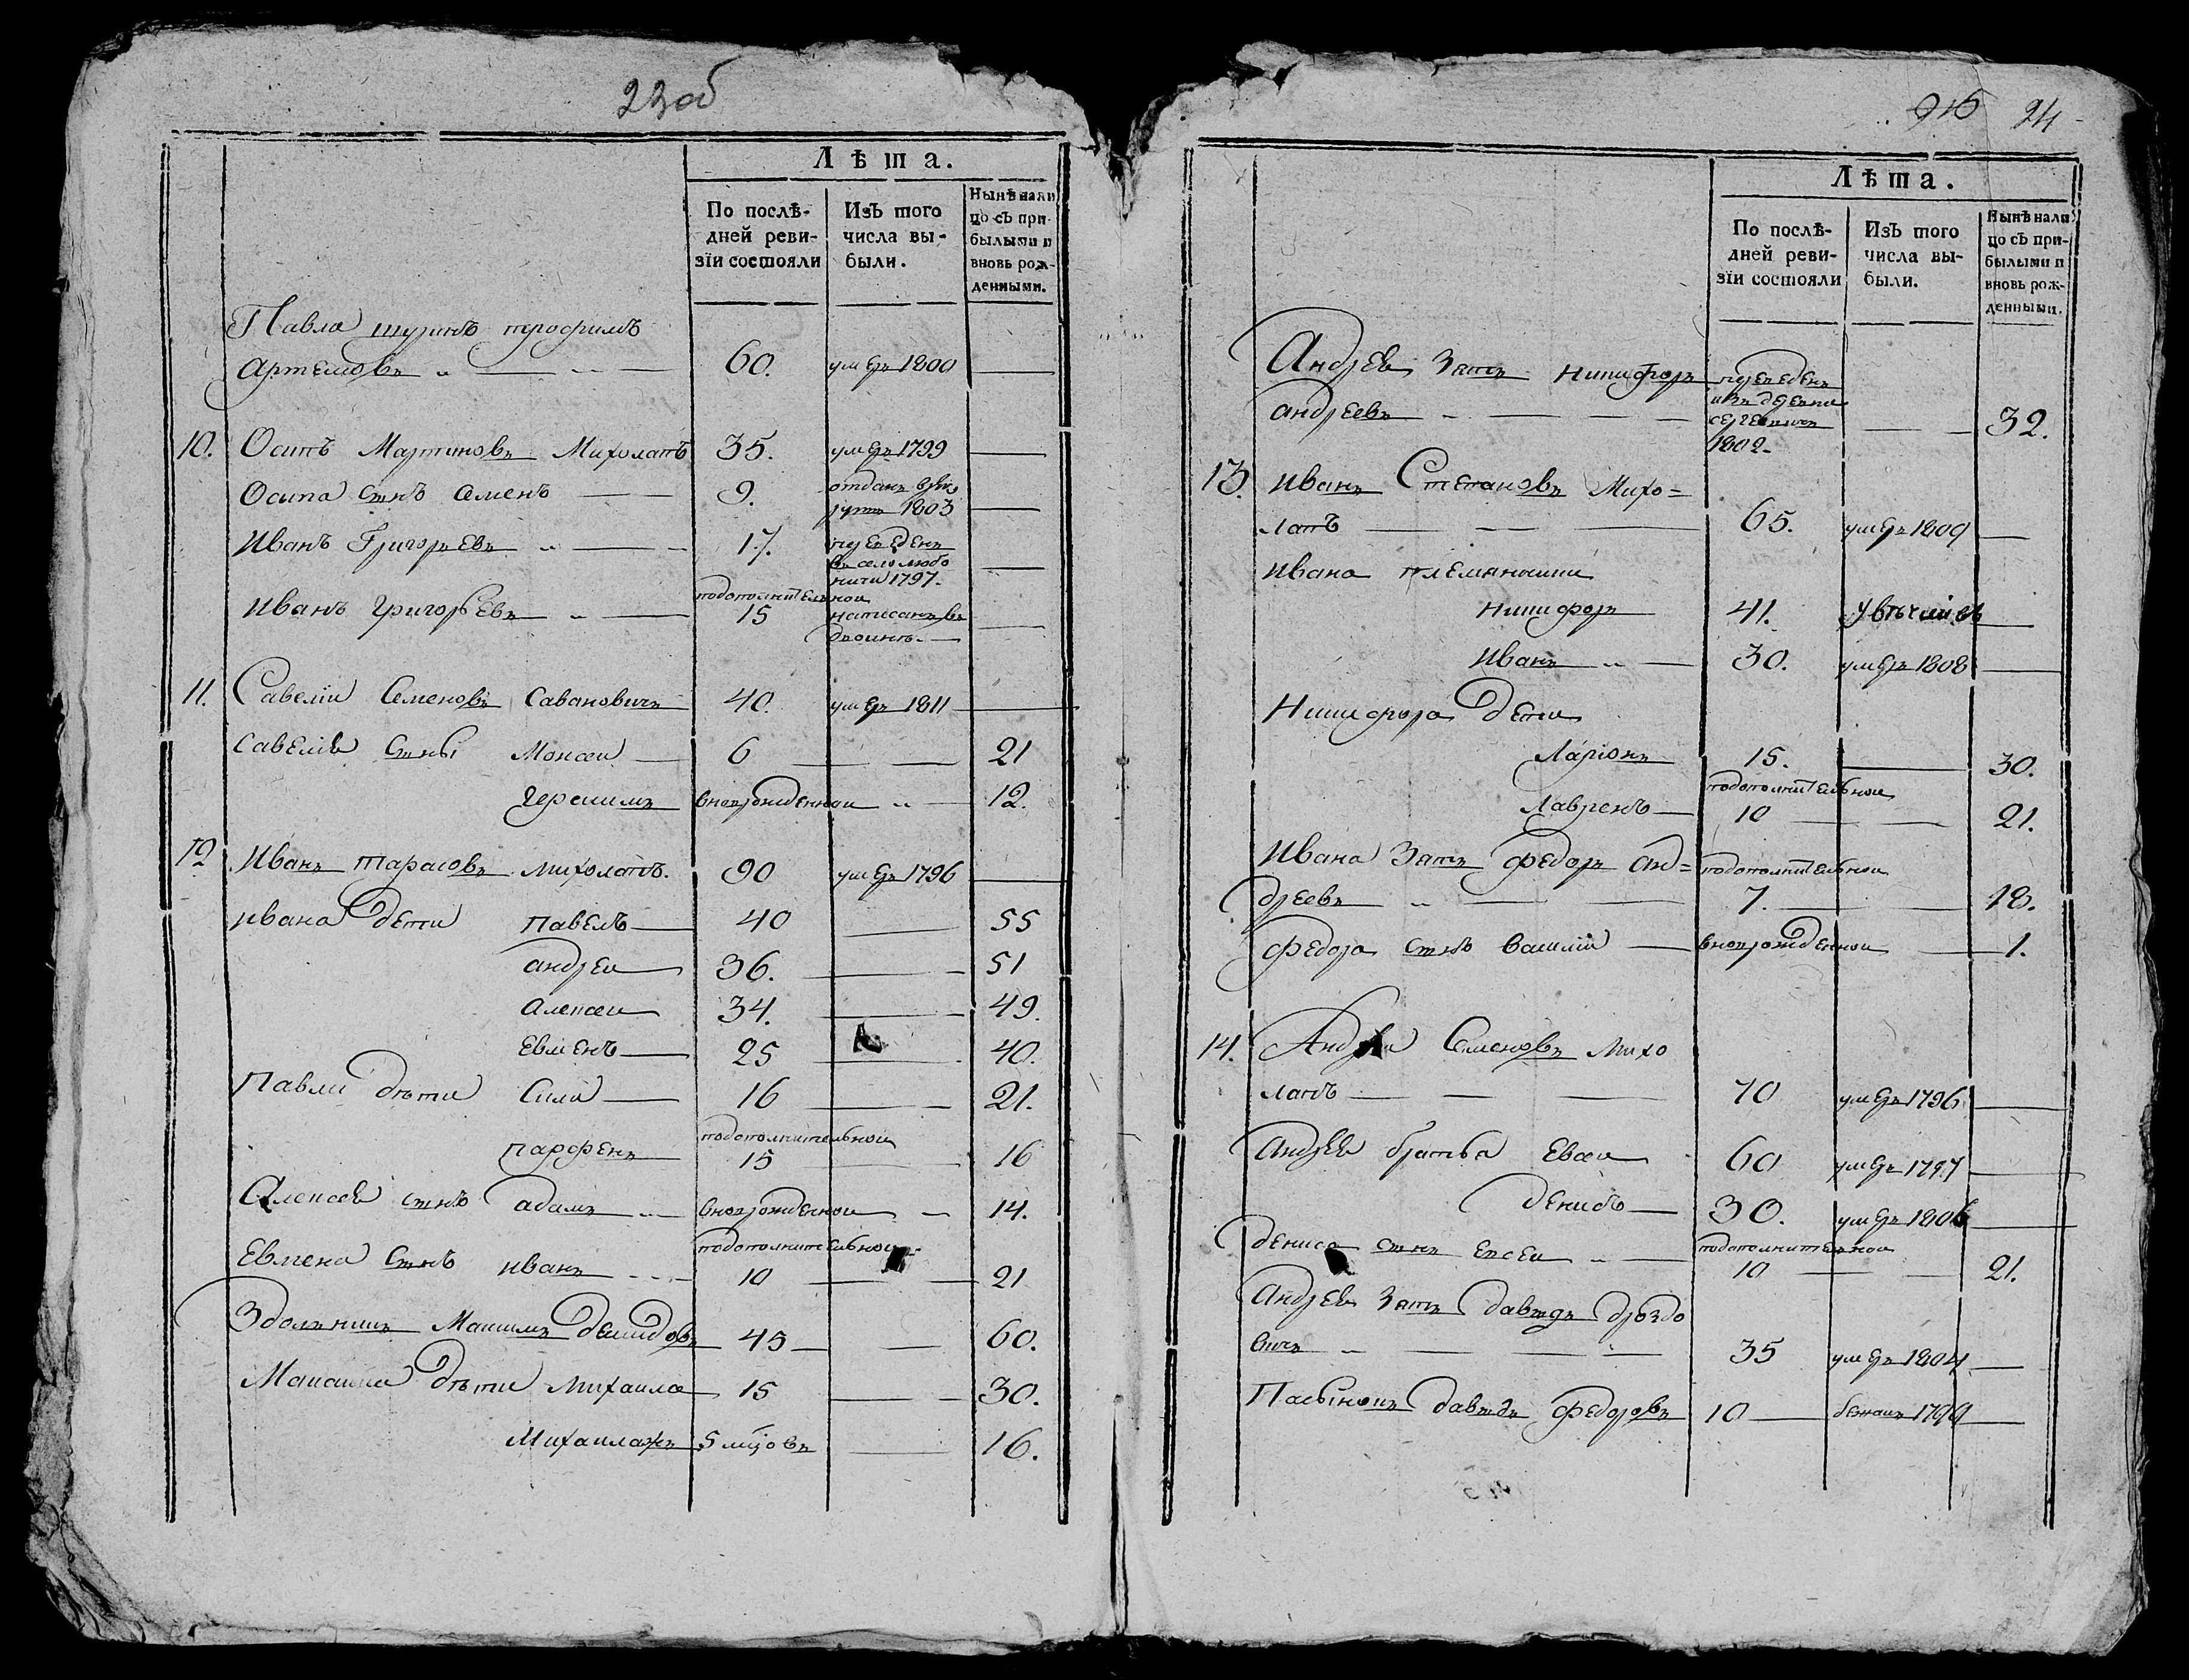 23об
Лѣта.
По послѣ-
дней реви-
зїи состояли
Изъ того
числа вы-
были.
Нынѣ нали
цо съ при-
былыми и
вновь рож-
денными.
Павла шуринъ трофимъ
Артемовъ 60. умеръ 1800
10. Осипъ Мартиновъ Михолапъ 35. умеръ 1799
Осипа сынъ Семенъ 9. отданъ врек
руты 1803
Иванъ Григорьевъ 17. переведенъ
въ село любо
ничи 1797.
подополнительнои
Иванъ Григорьевъ 15 написанъ в
двоинѣ.
11. Савелiи Семеновъ Савановичъ 40. умеръ 1811
Савелiя сыны Моисеи 6 21
Герасимъ вновьрожденнои 12.
12 Иванъ Тарасовъ Михолапъ. 90 умеръ 1796
Ивана дети Павелъ 40 55
Андреи 36. 51
Алексеи 34. 49.
Евменъ 25 40.
Павла дѣти Сила 16 21.
подополнительнои
Парфенъ 15 16
Алексея сынъ Адамъ вновьрожденнои 14.
подополнительнои
Евмена сынъ Иванъ 10 21
Здолникъ Максимъ Демидовъ 45 60.
Максима дѣти Михаила 15 30.
Михаилажъ 5 мцовъ 16.
916 24
Лѣта.
По послѣ-
дней реви-
зїи состояли
Изъ того
числа вы-
были.
Нынѣ нали
цо съ при-
былыми и
вновь рож-
денными.
Андрея Зять Никифоръ переведенъ
изъ деревни
Андреевъ 32.
1802.
13. Иванъ Степановъ Михо=
лапъ 65. умеръ 1809
Ивана племянники
Никифоръ 41.
Иванъ 30. умеръ 1808
Никифора дети
Ларiонъ 15. 30.
подополнительнои
Лавренъ 10 21.
Ивана Зять Федоръ Ан= подополнительнои
дреевъ 7. 18.
Федора сынъ Василiи вновьрожденнои 1.
14. Андреи Семеновъ Михо
лапъ 70 умеръ 1796
Андрея братья Евсеи 60 умеръ 1797
Денисъ 30. умеръ 1806
подополнительнои
Дениса сынъ Евсеи 10 21.
Андрея Зять Давыдъ Дроздо
вичъ 35 умеръ 1804
Пасынокъ Давыдъ Федоровъ 10 бежалъ 1799